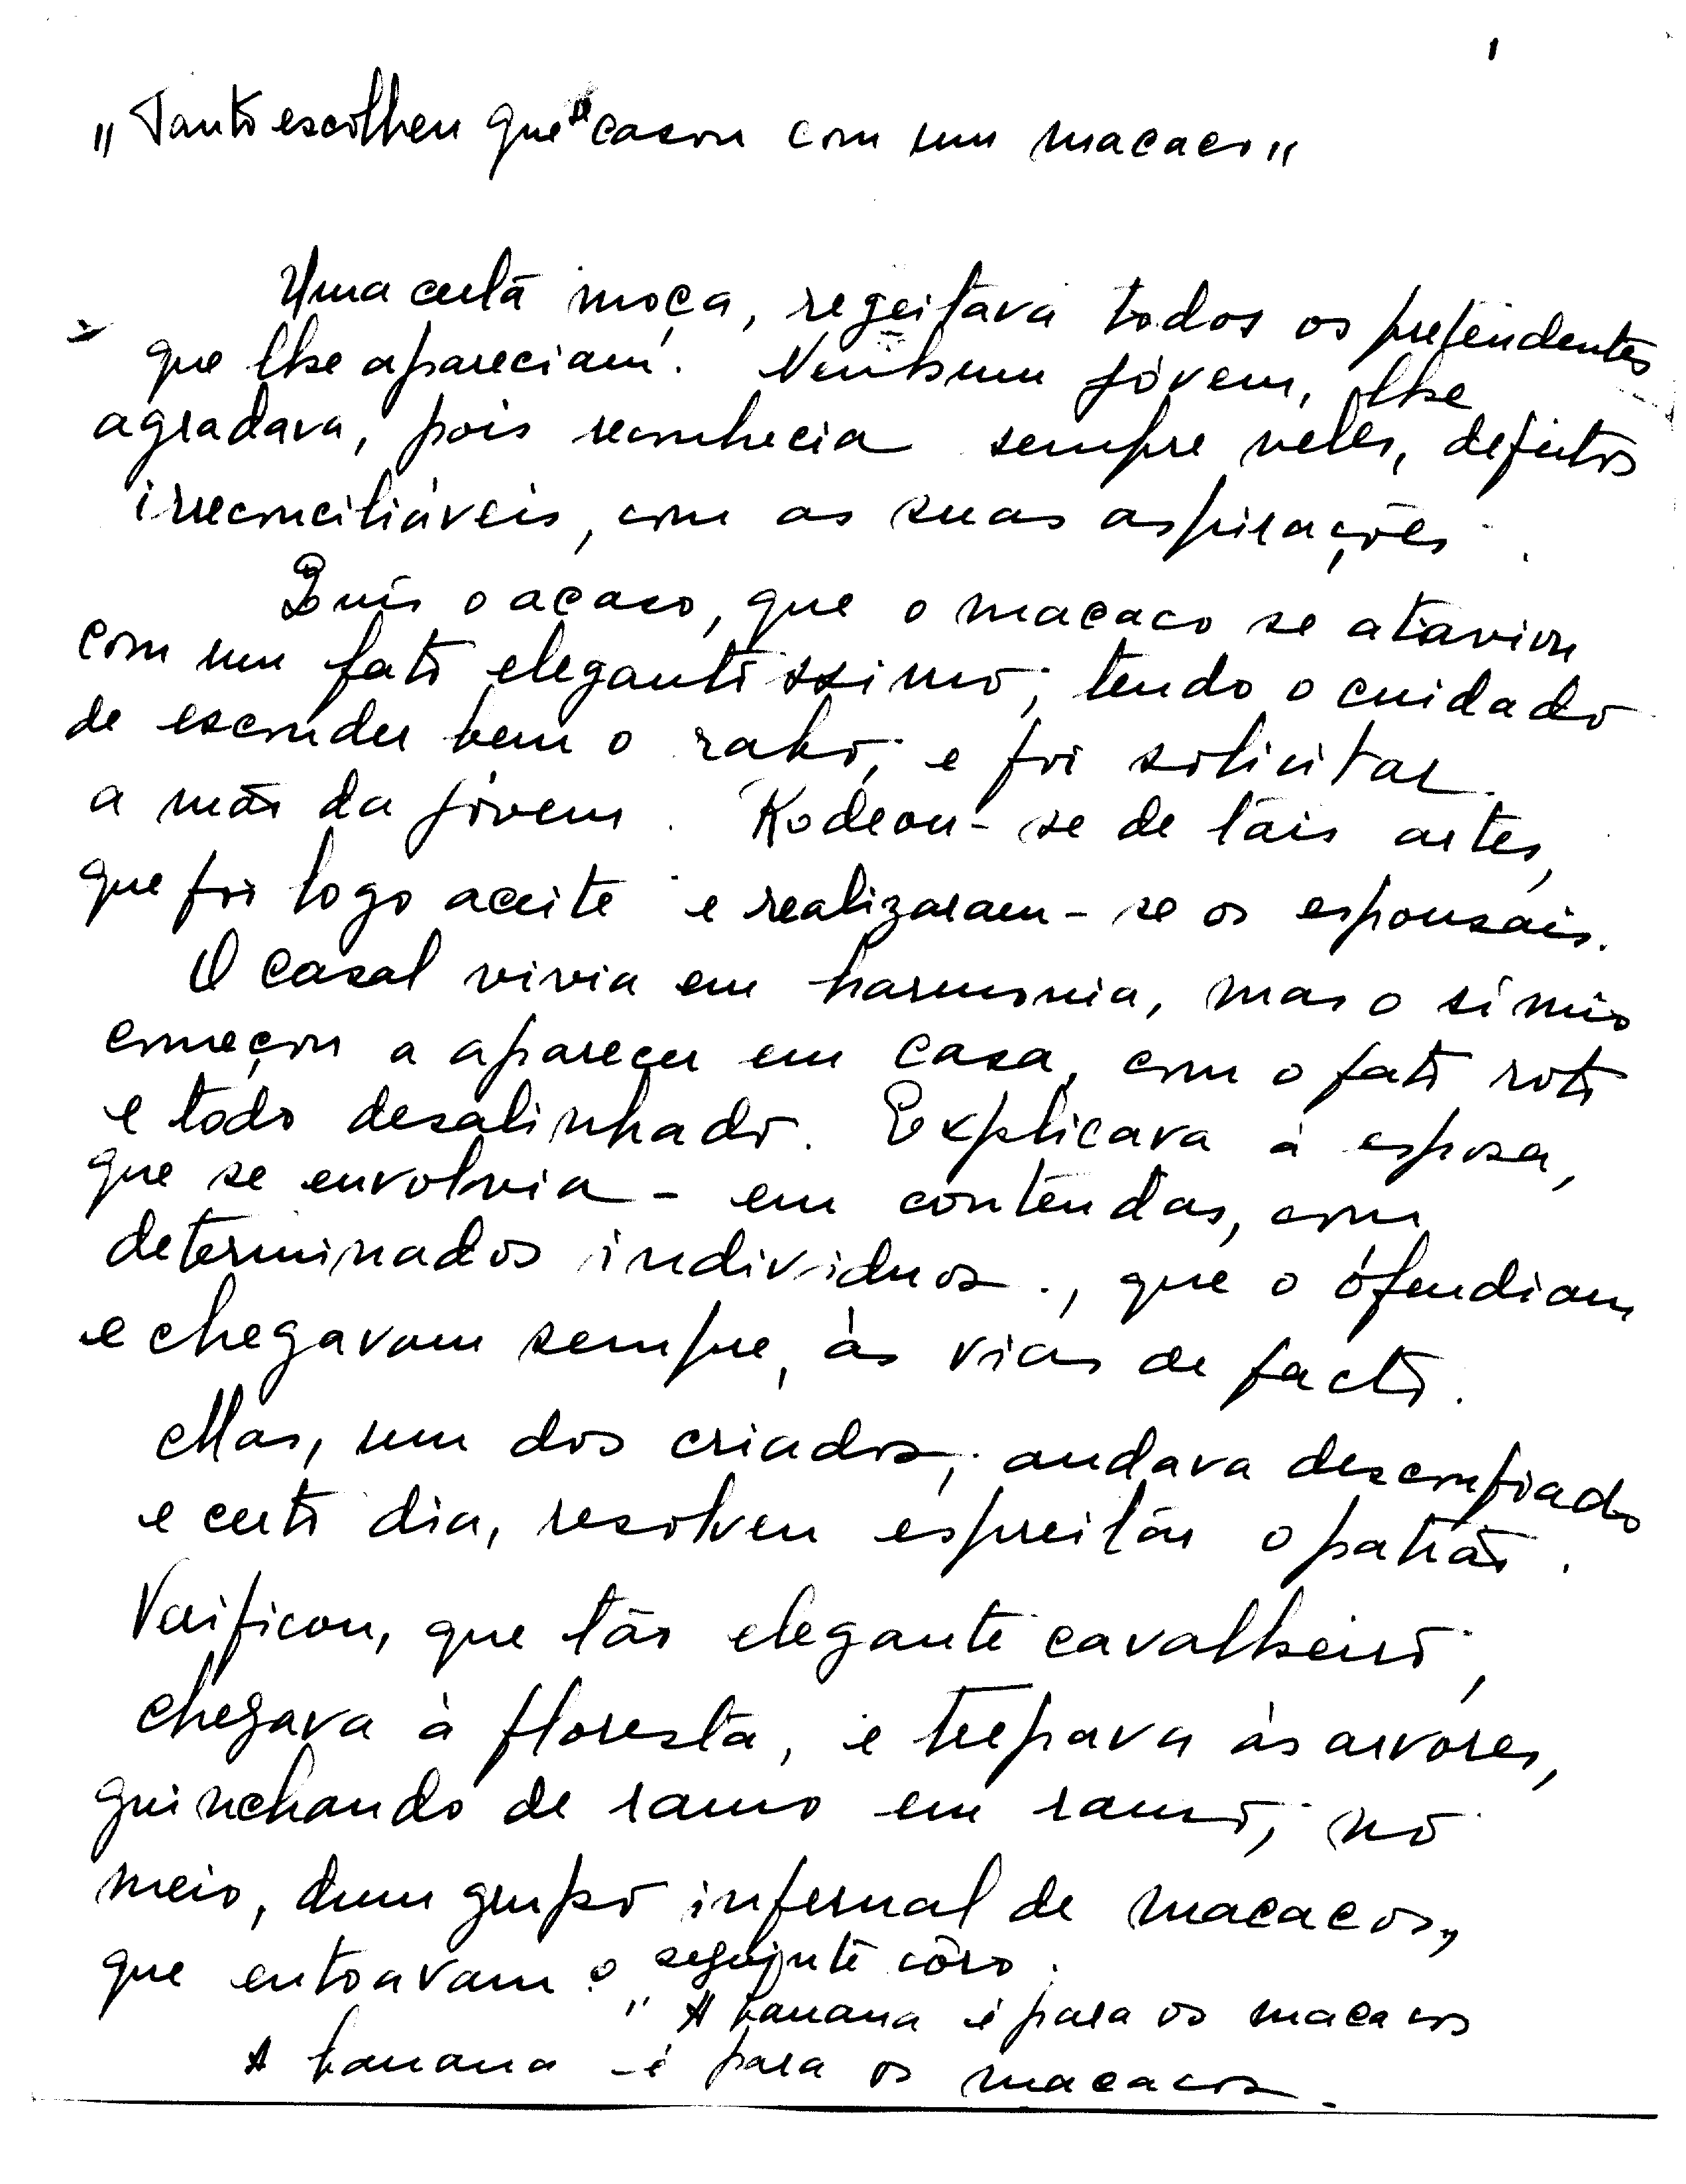 1
„Tanto escolheu que se casou com um macaco"
Uma certa moça, regeitava todos os pretendentes
que lhe apareciam. Nenhum jóvem, lhe
agradava, pois reconhecia sempre neles, defeitos
irreconciliáveis, com as suas aspirações.
Quis o acaso, que o macaco se ataviou
com um fato elegantíssimo, tendo o cuidado
de esconder bem o rabo, e foi solicitar
a mão da jóvem. Rodeou-se de tais artes,
que foi logo aceite e realizaram-se os esponsais.
O casal vivia em harmonia, mas o símio
começou a aparecer em casa, com o fato roto
e todo desalinhado. Explicava à esposa,
que se envolvia - em contendas, com
determinados individuos, que o ofendiam
e chegavam sempre, às vias de facto.
Mas, um dos criados, andava desconfiado
e certo dia, resolveu espreitar o patrão.
Verificou, que tão elegante cavalheiro,
chegava à floresta, e trepava às arvores,
guinchando de ramo em ramo, no
meio, dum grupo infernal de macacos,
que entoavam o seguinte côro:
"A banana é para os macacos
A banana é para os macacos.